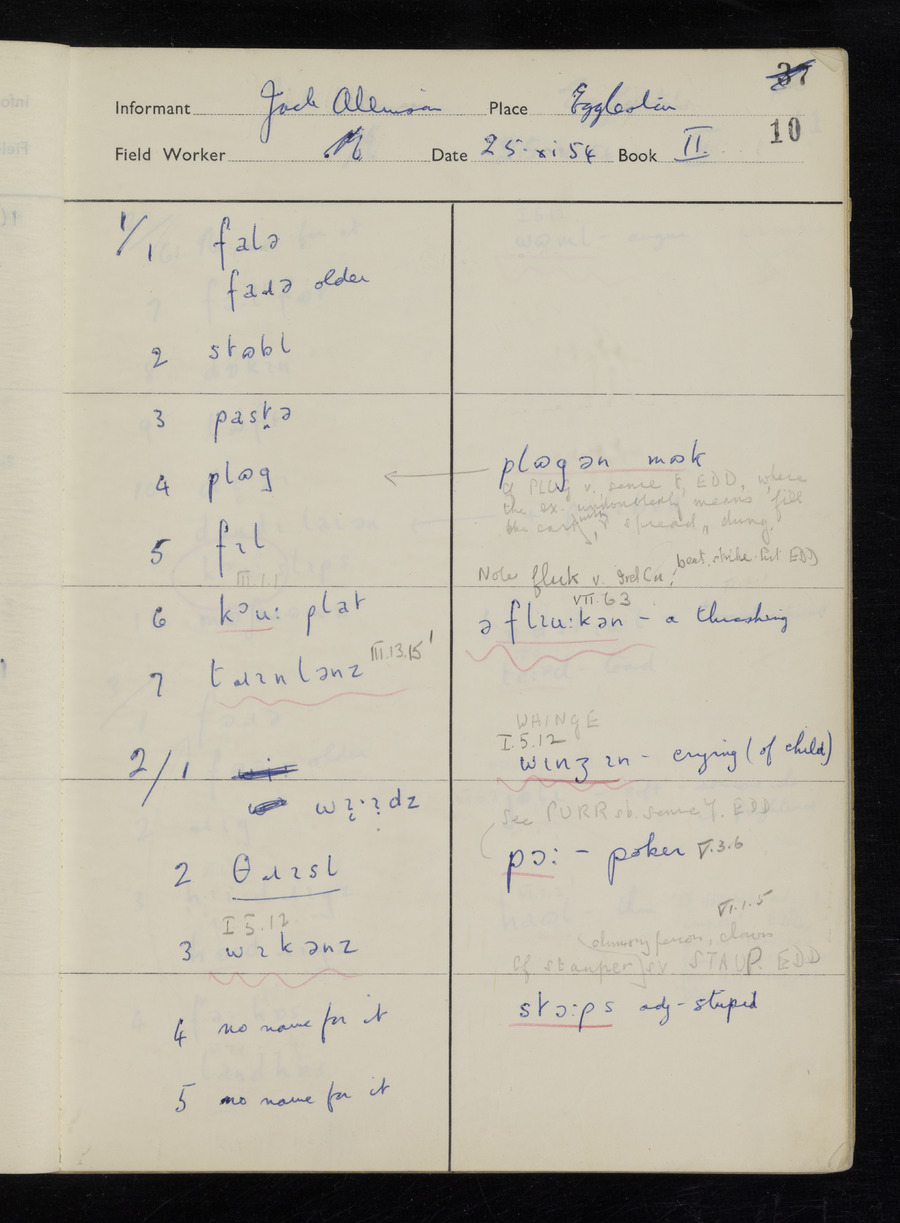 37
Informant Jack Allinson Place Eggleston
10
Field Worker Date 25·xi·54 Book II.
1/1 falə
faɹə older
2 stəbl
3 pastə
4 pləg
pləgən mək
cf PLUG v. sense 8, EDD, where
the ex. undoubtedly means 'fill
the cart with, spread, dung.
5 fɪl
Note flick v. beat, strike EDD
III.1.1
VII.63
6 kəu: plat
ə flɪu:kən – a thrashing
7 tɹɪnlənz III.13.15
WHINGE
I.5.12
wɪnʒɪn – crying (of child)
2/1
wɪ:ɪdz
See PURR sb. sense 7. EDD
pɔ: – poker V.3.6
2 θɹɪsl
VI.1.5
I 5.12.
3 wɪkənz
clumsy person, clown
cf stauper sv. STAUP. EDD
stɔ:ps adj – stupid
4 no name for it
5 no name for it